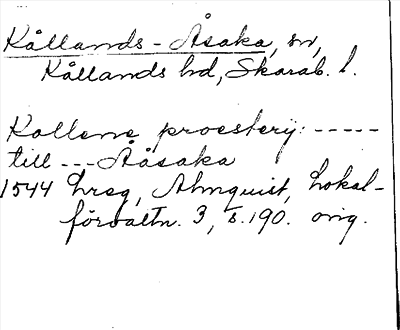 Kållands-Åsaka, sn,
Kållands hd, Skarab. l.
Kollene proesterij: -----
till --- Aåsaka
1544 Lreg, Almquist, Lokal-
förvaltn. 3, s. 190. orig.